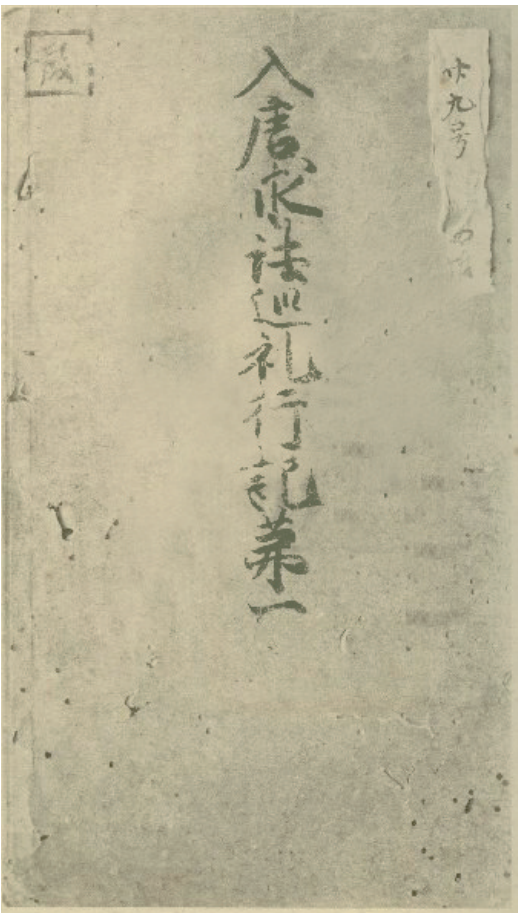 廿九号
入唐求法巡礼行記第一